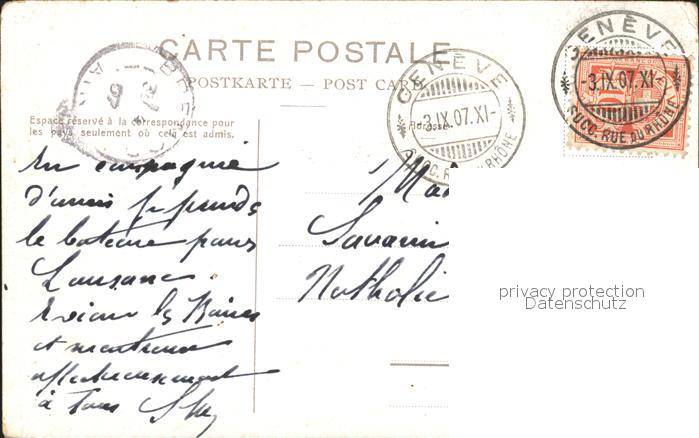 CARTE POSTALE
POSTKARTE — POST CARD
Espace réservé à la correspondance pour
les pays seulement où cela est admis.
Adresse
GENÈVE
-3.IX.07.XI-
SUCC. RUE DU RHÔNE
GENÈVE
-3.IX.07.XI-
SUCC. RUE DU RHÔNE
En compagnie
d'amis je prends
le bateau pour
Lausanne
Evian les Bains
et montreux
affectueusement
à tous
Savarin
Nathalie
privacy protection
Datenschutz